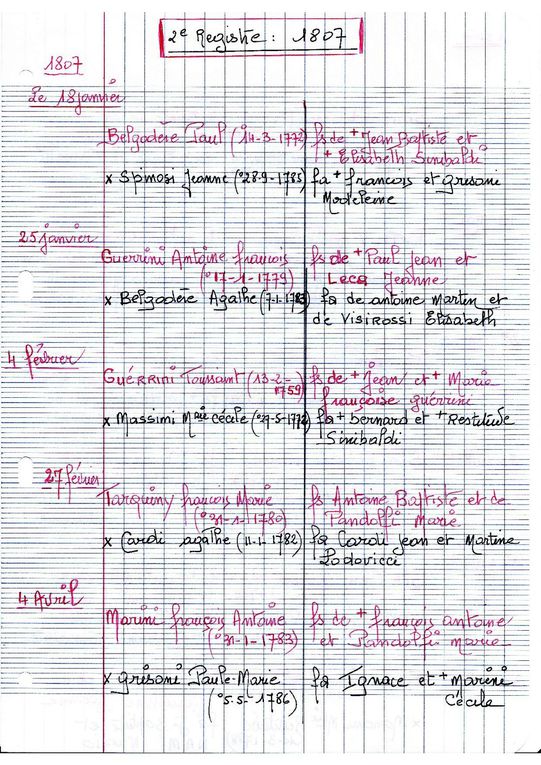 2e Registre : 1807
1807
Le 18 janvier
Belgodère Paul (°14-3-1772) fs de + Jean Baptiste et
+ Elisabeth Sinibaldi
x Spinosi Jeanne (°28-9-1785) fa + francois et grisoni
Madeleine
25 janvier
Guerrini Antoine françois fs de + Paul Jean et
(°17-1-1779) Leca Jeanne
x Belgodère Agathe (7-1-1783) fa de antoine Martin et
de Visirossi Elisabeth
4 février
Guérrini Toussaint (13-2- fs de + Jean et + Marie
1759) françoise guerrini
x Massimi Mie Cécile (°27-5-1772) fa + bernard et + Restitude
Sinibaldi
27 février
Tarquiny françois Marie fs Antoine Baptiste et de
(°21-1-1780) Pandolfi Marie
x Cardi agathe (11-1-1782) fa Cardi Jean et Martine
Lodovicci
4 Avril
Marini françois Antoine fs de + françois antoine
(°31-1-1783) et Pandolfi marie
x grisoni Paule-Marie fa Ignace et + Marini
(°5-5-1786) Cécile